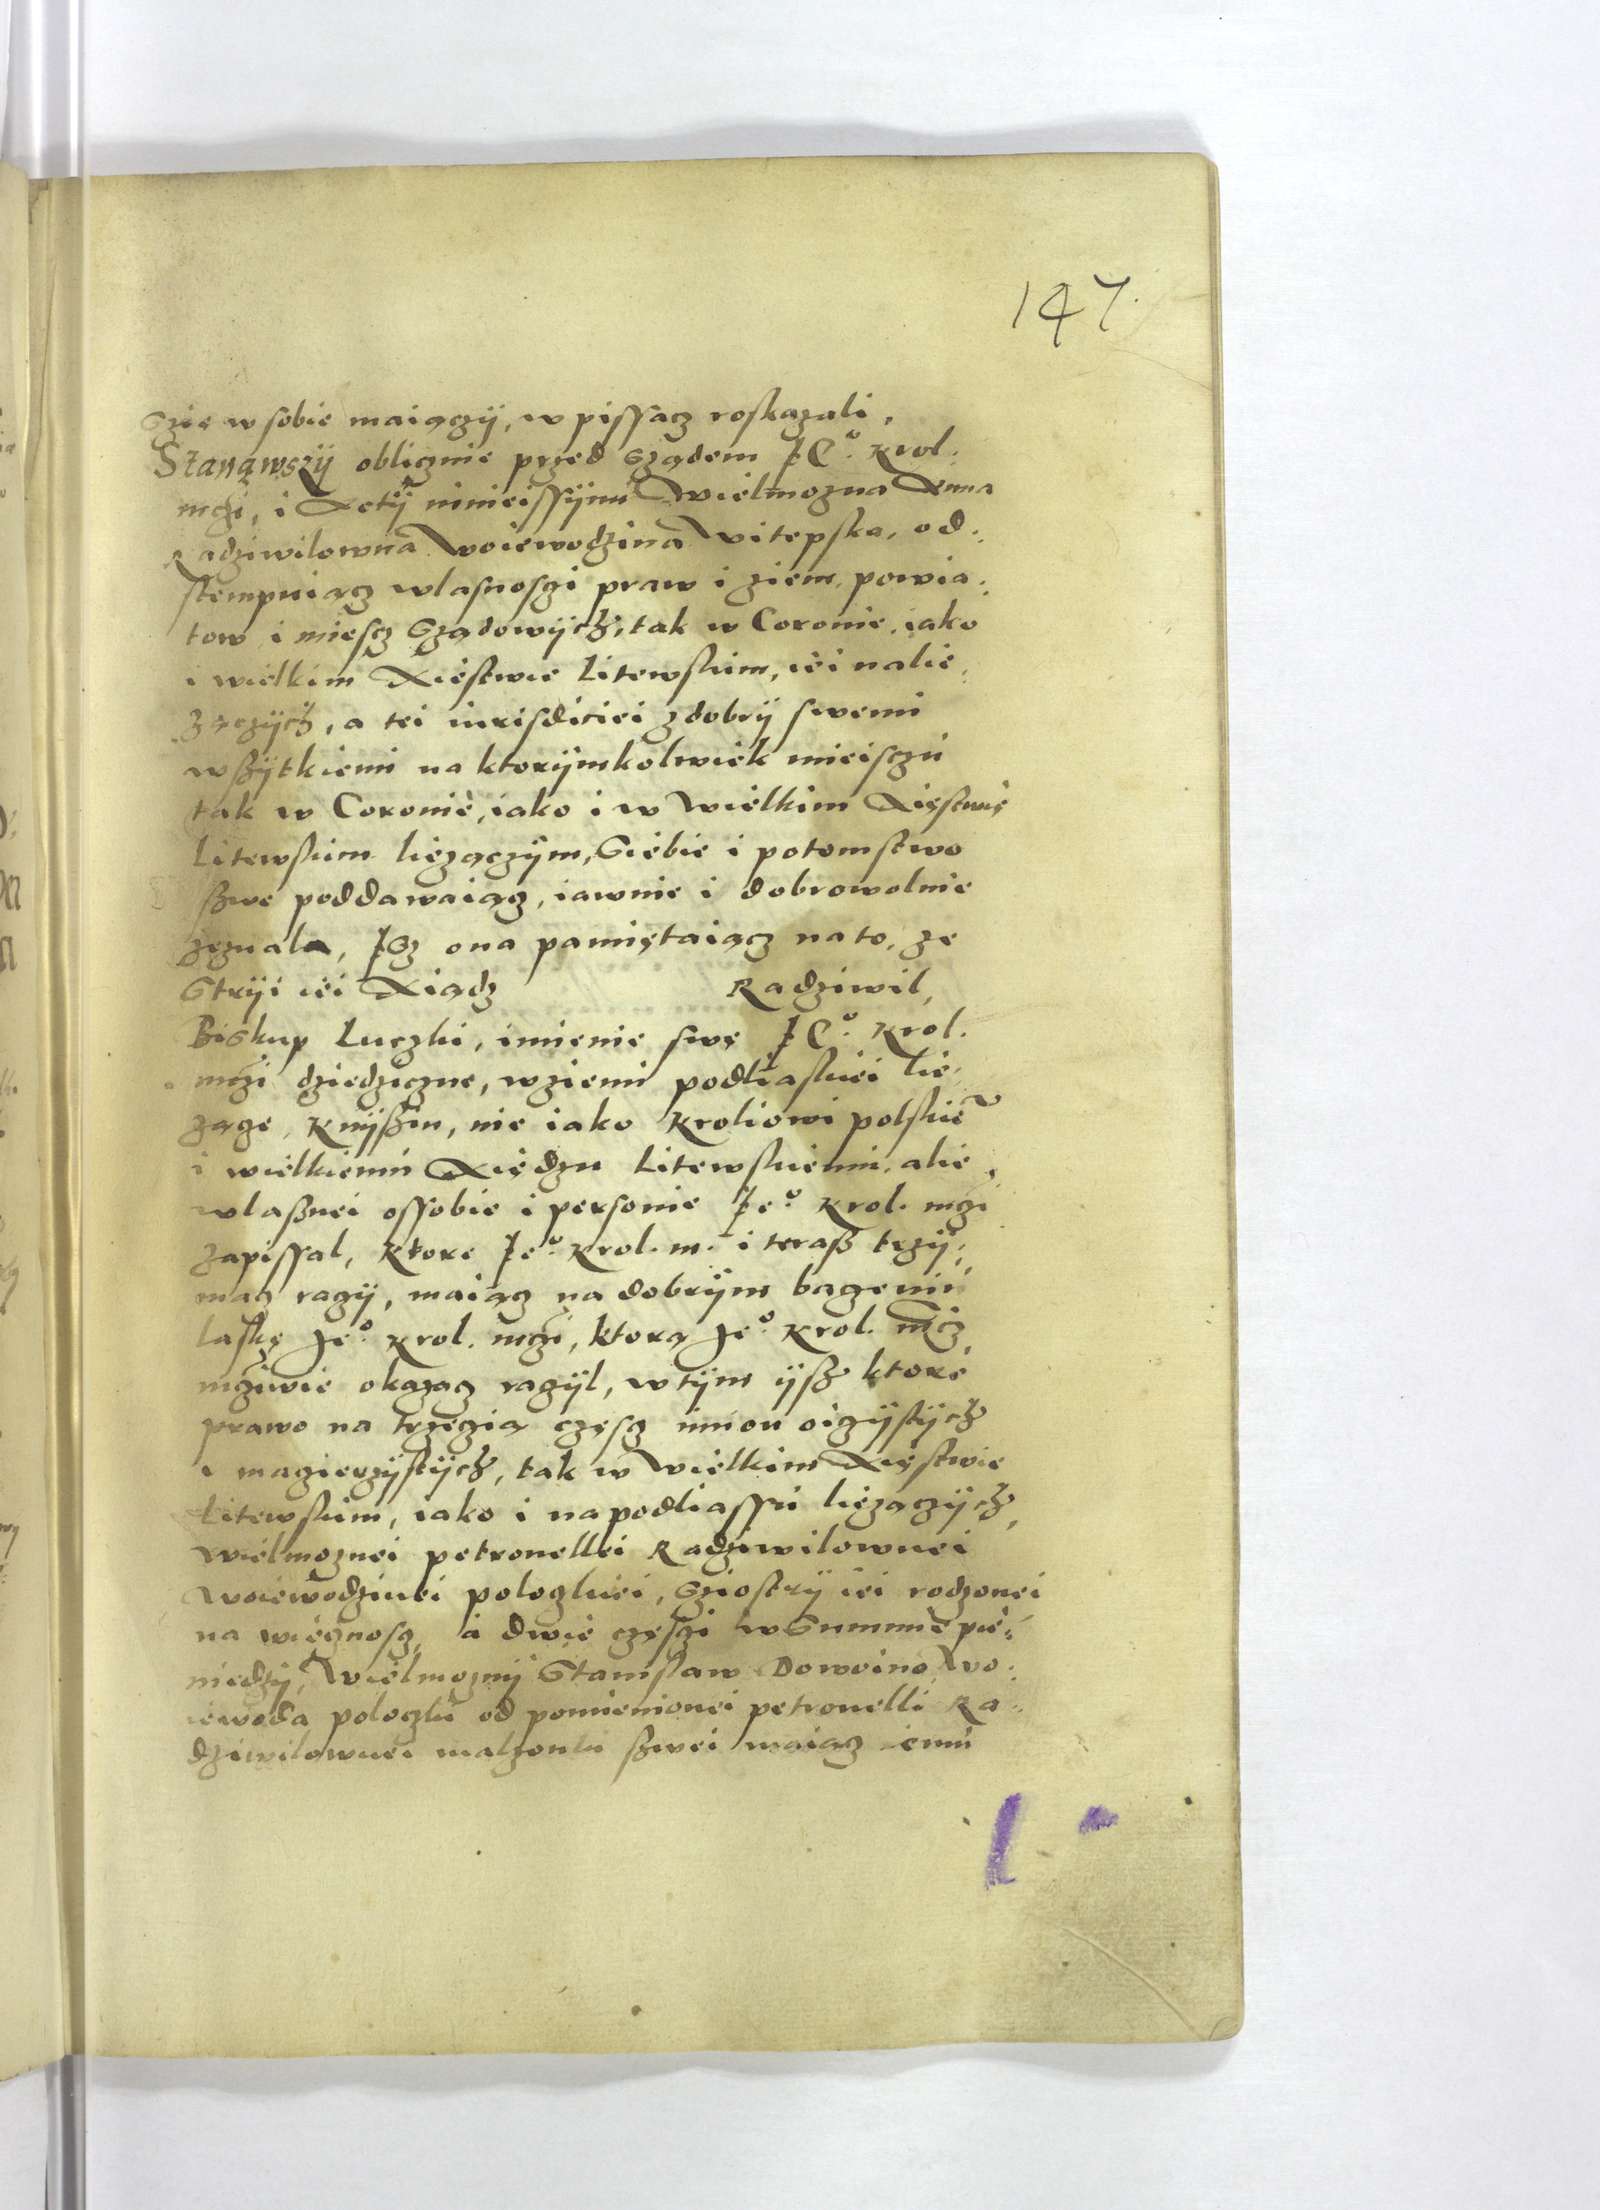 147.
Gzie w sobie maiączÿ, w pissacz roskazali,
Stanąwszÿ oblicznie przed Gządem IEº. Krol.
mczi, i Actÿ ninieissÿmi Wielmozna Anna
Radziwilowna Woiewodzina Vitepska, od:
stempuiącz wlasnosczi praw i ziem, powia:
tow i miescz Gządowÿch, tak w Coronie, iako
i wielkim Xiestwie Litewskim, iei nalie:
zączÿch, a tei iurisdiciei z dobrÿ swemi
wszÿtkiemi na ktorÿmkolwiek mieisczu
tak w Coronie, iako i w Wielkim Xięstwię
Litewskim liezączÿm, Giebie i potomstwo
szwe poddawaiącz, iawnie i dobrowolnie
zęznala, Iż ona pamiętaiącz na to, ze
Strÿi iei Xiądz Radziwil,
Biskup Luczki, imienie swe IEº. Krol.
mczi dziedziczne, w ziemi podliaskiei lie:
zącze, Knÿszin, nie iako Kroliowi polskie
i wielkiemu Xiędzu Litewskiemu, alie
wlasznei ossobie i personie Ieº. Krol. mczi
zapissal, ktore Ieº. Krol. m. i terasz trzÿ:
macz raczÿ, maiącz na dobrÿm baczeniu
laskę Jeº. Krol. mczi, ktorą Jeº. Krol. mcz
mcziwie okazacz raczÿl, w tÿm ÿsz ktore
prawo na trzeczią częscz imion oiczÿstÿch
i maczierzÿstÿch, tak w Wielkim Xięstwie
Litewskim, iako i na podliassu liezączÿch,
Wielmoznei petronellei Radziwilownei
Woiewodzinei poloczkiei, Gziostrÿ iei rodzonei
na wiecznoscz, a dwie częsczi w Summie pie:
niedzÿ, Wielmoznÿ Stanislaw Dowoino Wo:
iewoda poloczki od pomienionei petronelli Ra:
dziwilownei malzonki szwei maiącz iemu